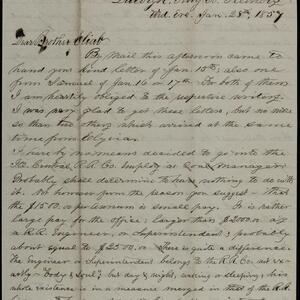 Wed. Eve. Jan. 28th, 1857
Dear Brother Eliab
By Mail this afternoon came to
hand your kind letter of Jan 15th; also one
from Samuel of Jan 16 — 17th. For both of them
I am heartily obliged to the respective writers.
I was very glad to get these letters, but no more
so than two others which arrived at the same
time from Elysian.
I have by no means decided to go into the
Ills. Central R.R. Co. employ as Land Manager.
Probably shall determine to have nothing to do with
it. No however from the reason you suggest — that
the $1500. or per annum is small pay. It is rather
large pay for the office; larger than $2000. a
R.R. Engineer, or Superintendent & probably
about equal to $2500. There is quite a difference.
The Engineer or Superintendent belongs to the R.R. Co.
"body & soul", but day & night, eating or sleeping; his
whole existence is in a measure merged in that of the R.R.